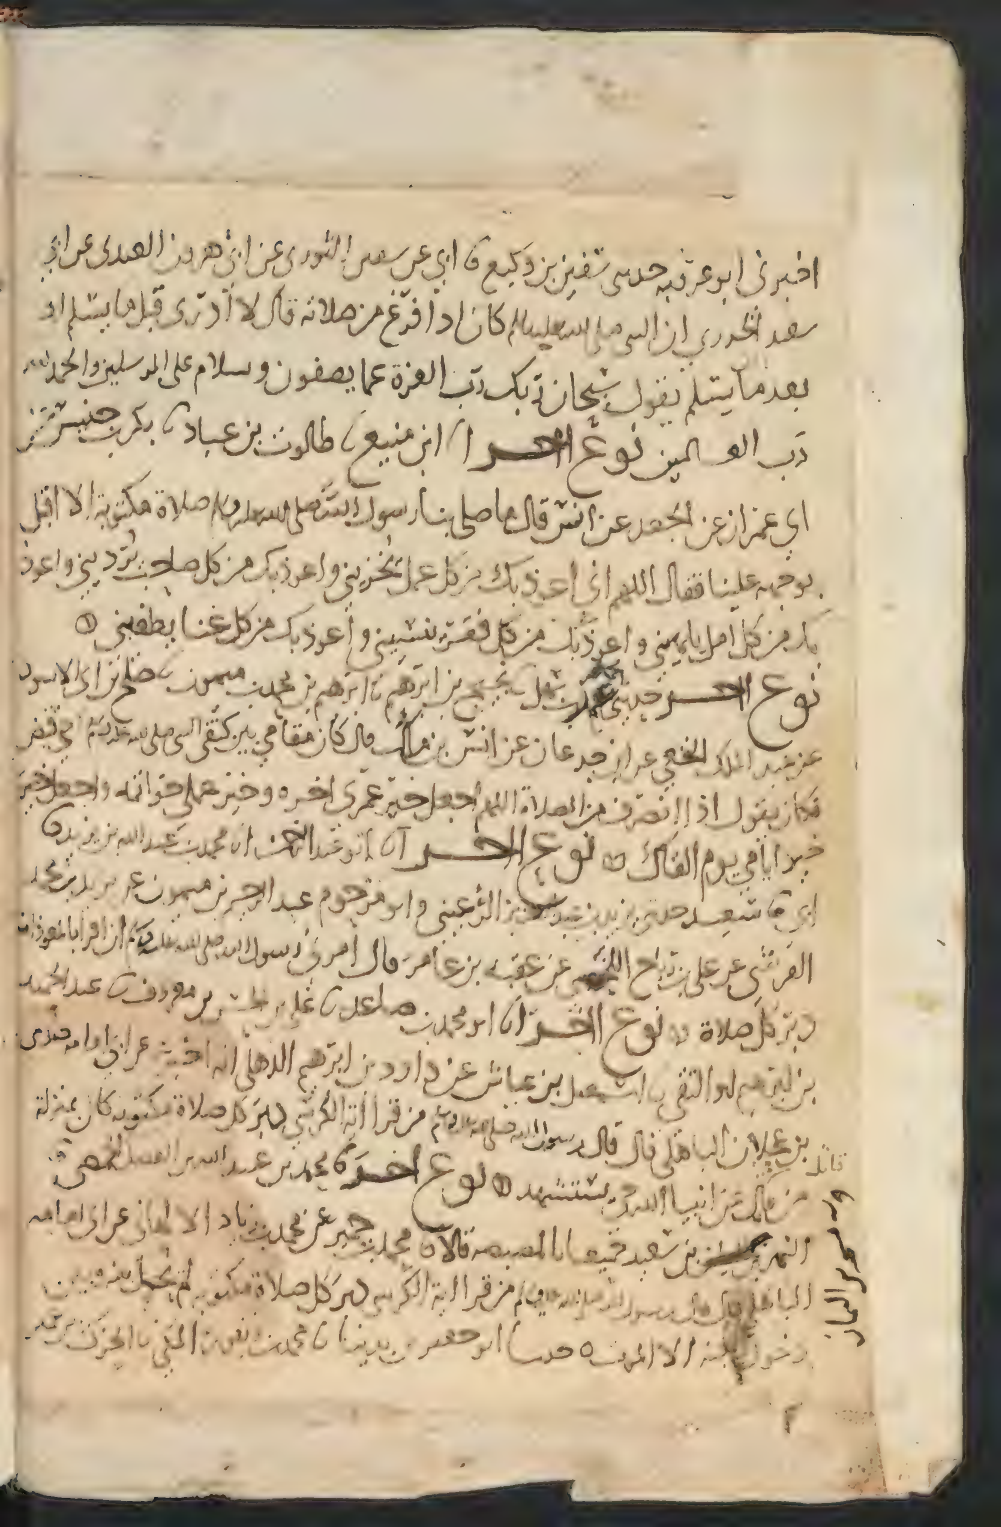 اخبرني ابو عروبه حدثنا سفين بن وكيع ثنا ابي عن سفين الثوري عن ابي هرون العبدي عن ابي
سعيد الخدري ان النبي صلى الله عليه وسلم كان اذا فرغ من صلاته قال لا ادري قبل ما يسلم او
بعد ما يسلم يقول سبحان ربك رب العزة عما يصفون وسلام على المرسلين والحمد لله
رب العالمين نوع اخر انا ابن منيع ثنا طالوت بن عباد ثنا بكر بن خنيس عن
ابي عمران عن الجعد عن انس قال ما صلى بنا رسول الله صلى الله عليه وسلم صلاة مكتوبة الا اقبل
بوجهه علينا فقال اللهم اني اعوذ بك من كل عمل يخزيني واعوذ بك من كل صاحب يرديني واعوذ
بك من كل امل يلهيني واعوذ بك من كل فقر ينسيني واعوذ بك من كل غنا يطغيني
نوع اخر حدثني سهل ابرهيم بن محمد بن ميمون ثنا صلح بن ابي الاسود
عن عبد الملك النخعي عن ابن جدعان عن انس بن مالك قال كان مقامي بين كتفي النبي صلى الله عليه وسلم
فكان يقول اذا انصرف من الصلاة اللهم اجعل خير عمري اخره وخير عملي خواتمه واجعل خير
خير ايامي يوم القاك نوع اخر انا ابو عبد الرحمن انا محمد بن عبد الله بن يزيد ثنا
ابي ثنا سعيد حدثني يزيد بن عبد العزيز الرعيني وابو مرحوم عبد الرحيم بن ميمون عن يزيد بن محمد
القرشي عن علي بن رباح اللخمي عن عقبه بن عامر قال امرني رسول الله صلى الله عليه وسلم ان اقرا بالمعوذات
دبر كل صلاة نوع اخر ثنا ابو محمد بن صاعد ثنا علي بن الحسن بن معروف ثنا عبد الحميد
بن ابرهيم ابو التقي ثنا اسمعيل بن عياش عن داود بن ابرهيم الذهلي انه اخبره عن ابي امامه صدي
بن عجلان الباهلي قال قال رسول الله صلى الله عليه وسلم من قرا اية الكرسي دبر كل صلاة مكتوبه كان بمنزلة
من قاتل عن انبيا الله حتى يستشهد نوع اخر ثنا محمد بن عبيد الله بن الفضل الحمصي ثنا
اليمان بن سعيد بالمصيصه قالا ثنا محمد بن حمير عن محمد بن زياد الالهاني عن ابي امامه
الباهلي قال قال رسول الله صلى الله عليه وسلم من قرا اية الكرسي دبر كل صلاة مكتوبه لم يحل بينه وبين
دخول الجنه الا الموت حدثنا ابو جعفر بن بدينا ثنا محمد بن
قاتل